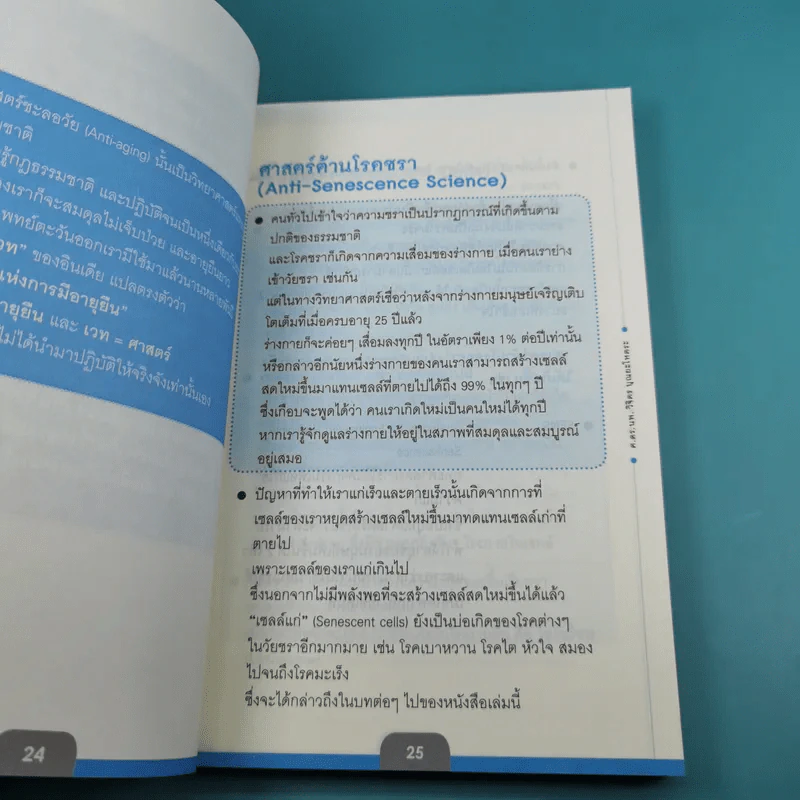 ศาสตร์ชะลอวัย (Anti-aging) นั้นเป็นวิทยาศาสตร์
กฎธรรมชาติ และปฏิบัติจนเป็นหนึ่งเดียวกับ
เราก็จะสมดุลไม่เจ็บป่วย และอายุยืนยาว
แพทย์ตะวันออกเรามีใช้มาแล้วนานหลายพันปี
ของอินเดีย แปลตรงตัวว่า
แห่งการมีอายุยืน”
อายุยืน และ เวท = ศาสตร์
ไม่ได้นำมาปฏิบัติให้จริงจังเท่านั้นเอง
24
ศาสตร์ด้านโรคชรา
(Anti-Senescence Science)
● คนทั่วไปเข้าใจว่าความชราเป็นปรากฏการณ์ที่เกิดขึ้นตาม
ปกติของธรรมชาติ
และโรคชราก็เกิดจากความเสื่อมของร่างกาย เมื่อคนเราย่าง
เข้าวัยชรา เช่นกัน
แต่ในทางวิทยาศาสตร์เชื่อว่าหลังจากร่างกายมนุษย์เจริญเติบ
โตเต็มที่เมื่อครบอายุ 25 ปีแล้ว
ร่างกายก็จะค่อยๆ เสื่อมลงทุกปี ในอัตราเพียง 1% ต่อปีเท่านั้น
หรือกล่าวอีกนัยหนึ่งร่างกายของคนเราสามารถสร้างเซลล์
สดใหม่ขึ้นมาแทนเซลล์ที่ตายไปได้ถึง 99% ในทุกๆ ปี
ซึ่งเกือบจะพูดได้ว่า คนเราเกิดใหม่เป็นคนใหม่ได้ทุกปี
หากเรารู้จักดูแลร่างกายให้อยู่ในสภาพที่สมดุลและสมบูรณ์
อยู่เสมอ
● ปัญหาที่ทำให้เราแก่เร็วและตายเร็วนั้นเกิดจากการที่
เซลล์ของเราหยุดสร้างเซลล์ใหม่ขึ้นมาทดแทนเซลล์เก่าที่
ตายไป
เพราะเซลล์ของเราแก่เกินไป
ซึ่งนอกจากไม่มีพลังพอที่จะสร้างเซลล์สดใหม่ขึ้นได้แล้ว
“เซลล์แก่” (Senescent cells) ยังเป็นบ่อเกิดของโรคต่างๆ
ในวัยชราอีกมากมาย เช่น โรคเบาหวาน โรคไต หัวใจ สมอง
ไปจนถึงโรคมะเร็ง
ซึ่งจะได้กล่าวถึงในบทต่อๆ ไปของหนังสือเล่มนี้
● ศ.ดร.นพ.วิจิตร บุณยะโหตระ ●
25